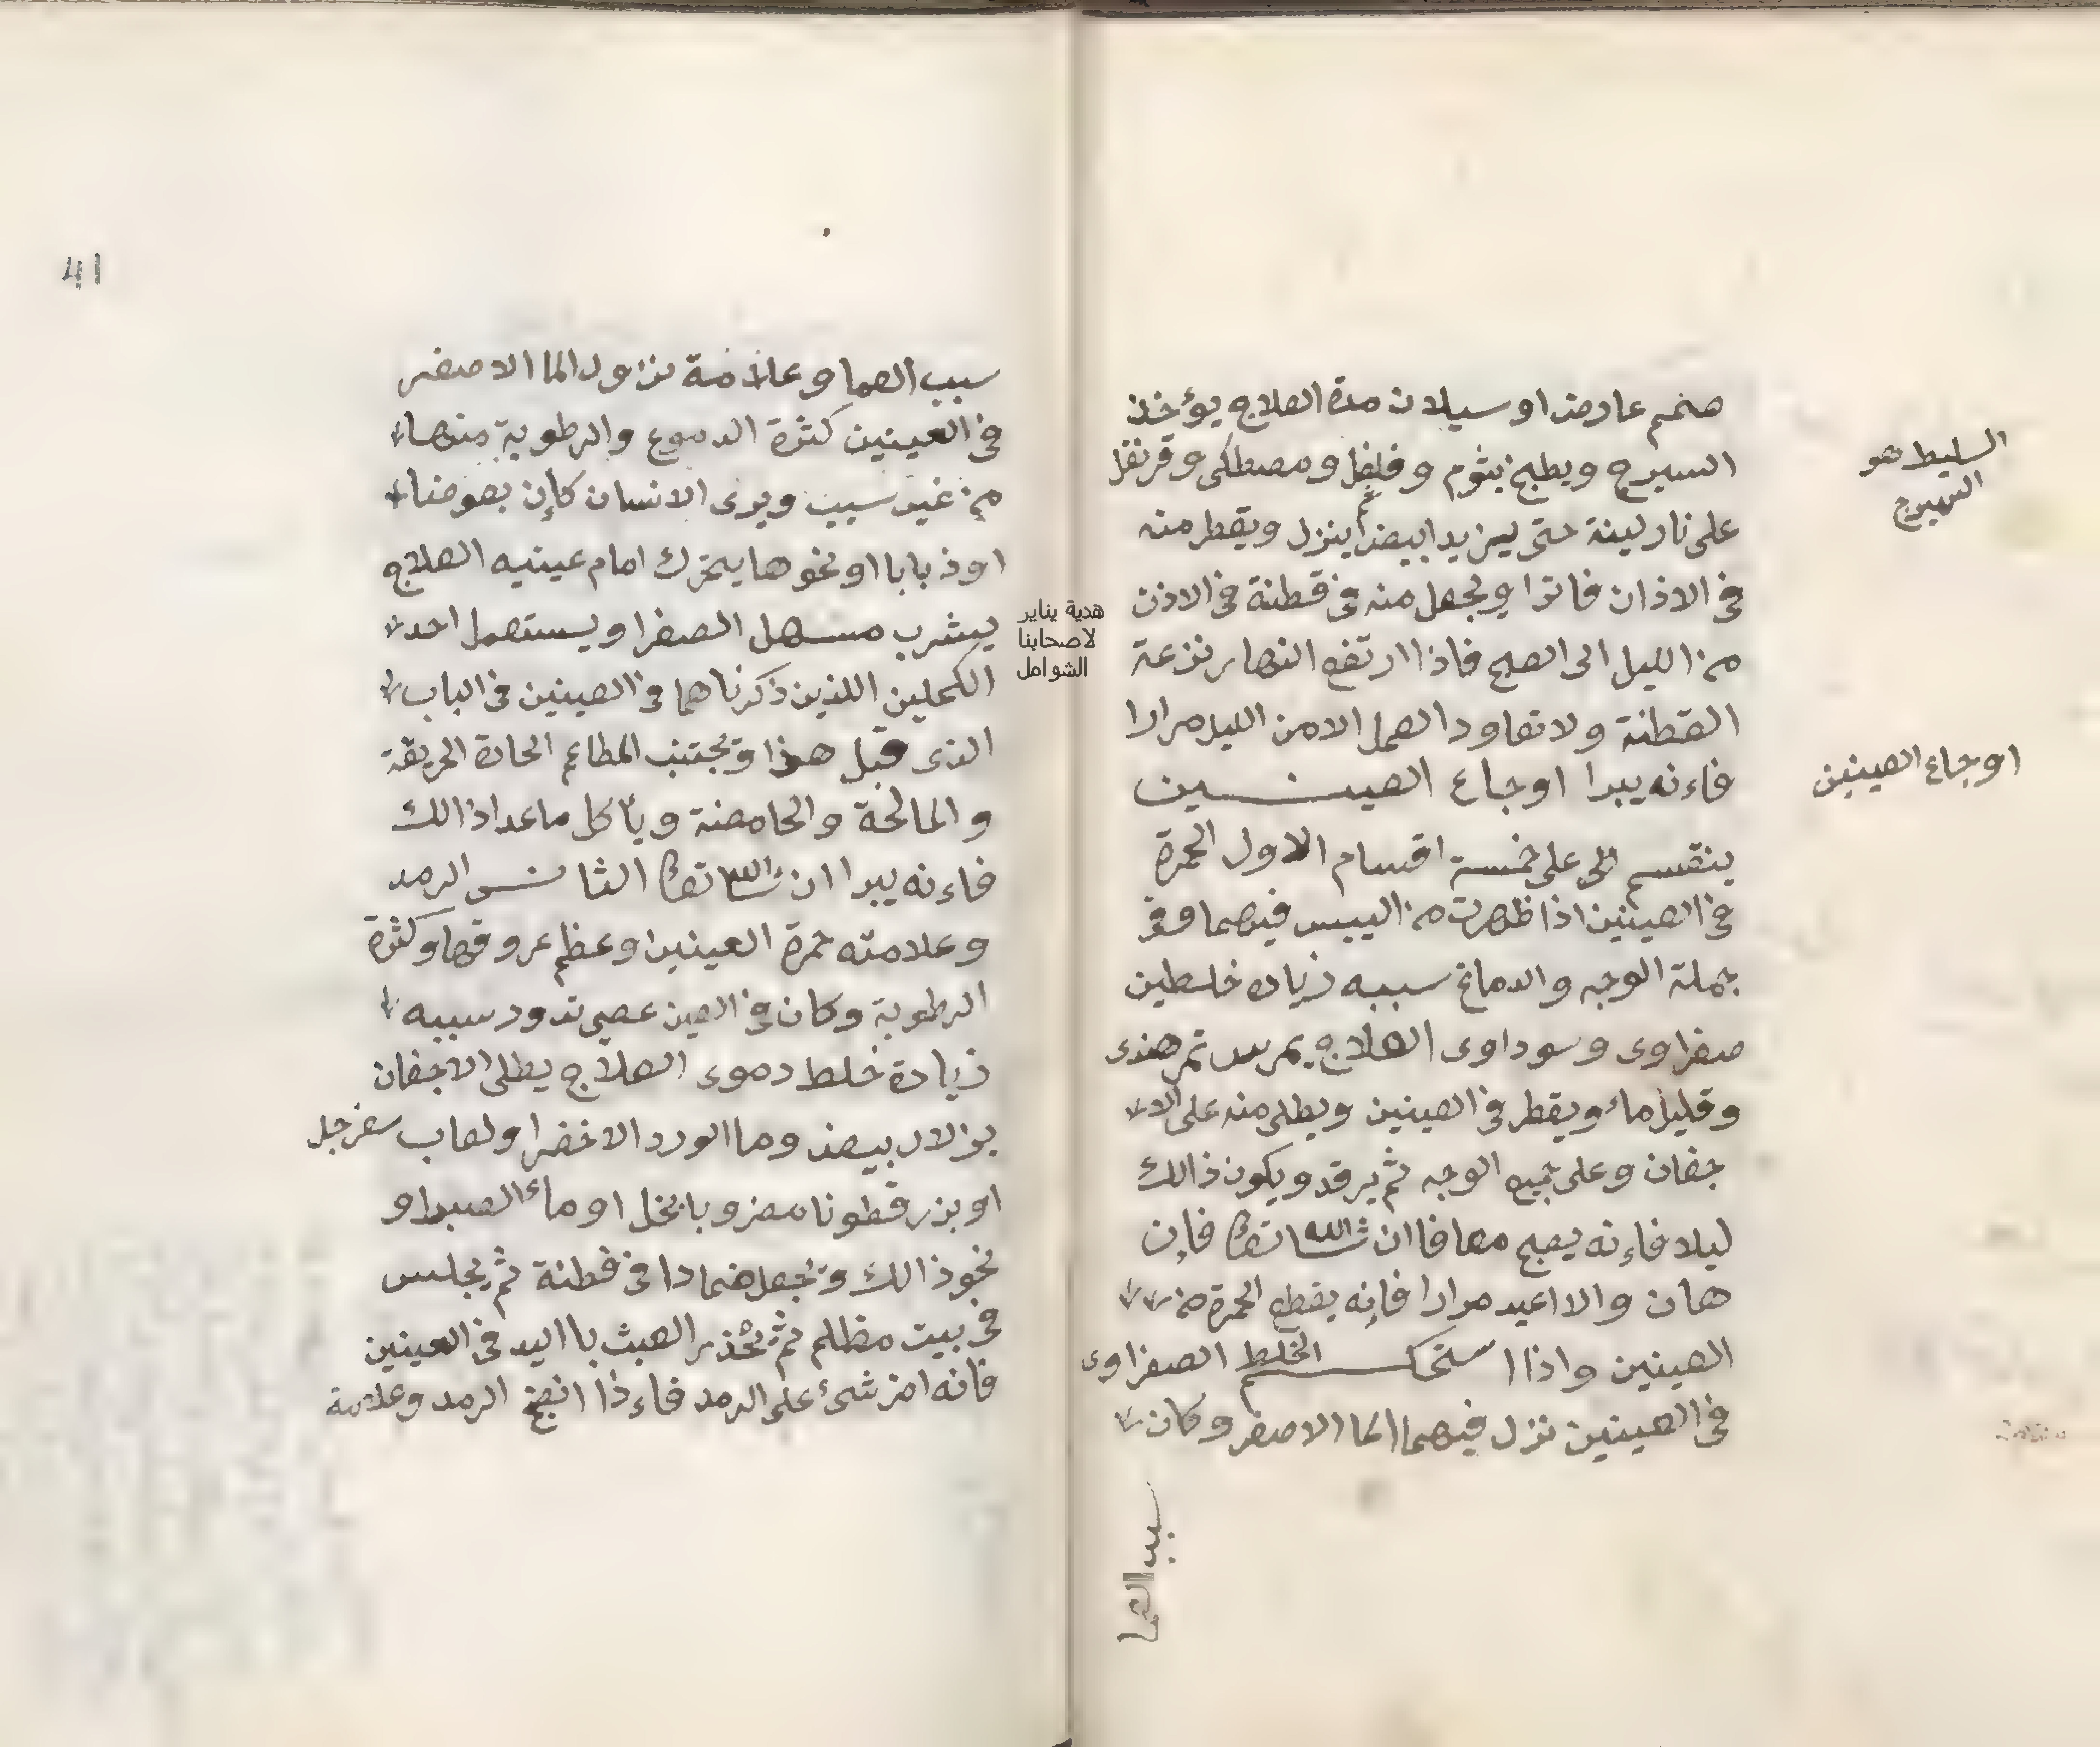 صمم عارض او سيلان مدة العلاج يؤخذ
السيرج ويطبخ بثوم وفلفل ومصطكى وقرنفل
على نار لينة حتى ابيضا ثم ينزل ويقطر منه
فى الاذان فاترا ويجعل منه فى قطنة فى الاذن
من الليل الى الصبح فاذا ارتفع النهار نزعة
القطنة ولا تعاود العمل الا من الليل مرارا
فاءنه يبرا اوجاع العينين
ينقسم الى على خمسة اقسام الاول الحمرة
فى العينين اذا ظهرت من اليبس فيهما وفى
جملة الوجه والدماغ سببه زيادة خلطين
صفراوى وسوداوى العلاج يمرس تمر هندى
وقليل ماء ويقطر فى العينين ويطلى منه على الا
جفان وعلى جميع الوجه ثم يرقد ويكون ذالك
ليلا فاءنه يصبح معافا ان شا الله تعالى فاءن
هان والا اعيد مرارا فاءنه يقطع الحمرة من
العينين واذا استحكم الخلط الصفراوى
فى العينين نزل فيهما الما الاصفر وكان
سبب العما
السليط هو
السيرج
اوجاع العينين
هدية يناير
لاصحابنا
الشوامل
41
سبب العما وعلامة نزول الما الاصفر
فى العينين كثرة الدموع والرطوبة منها
من غير سبب ويرى الانسان كاءن بعوضا
او ذبابا او نحوها يتحرك امام عينيه العلاج
يشرب مسهل الصفرا ويستعمل احد
الكحلين اللذين ذكرناهما فى العينين فى الباب
الذى قبل هذا وتجتنب المطاعم الحادة الحريقة
والمالحة والحامضة وياكل ما عدا ذالك
فاءنه يبرا ان شا الله تعالى الثانى الرمد
وعلامته حمرة العينين وعظم عروقها وكثرة
الرطوبة وكان فى العين عصى تدور سببه
زيادة خلط دموى العلاج يطلى الاجفان
بزلال بيض وما الورد الاخضر ولعاب سفرجل
او بزر قطونا مضروبا بخل او ماء الصبر او
نحو ذالك وتجعل ضمادا فى قطنة ثم يجلس
فى بيت مظلم ثم يحذر العبث باليد فى العينين
فانه اضر شىء على الرمد فاءذا انضج الرمد وعلامة